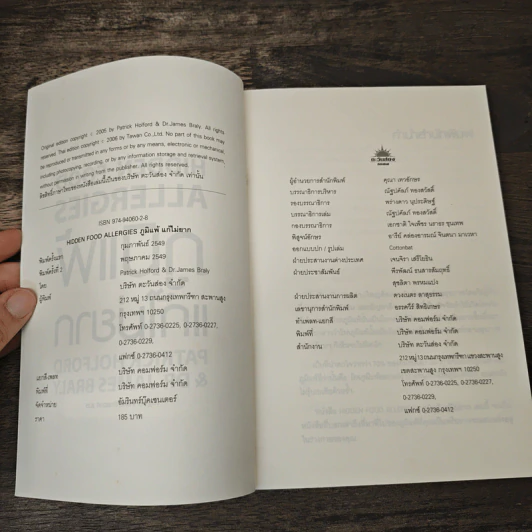 Original edition copyright © 2005 by Patrick Holford & Dr.James Braly. All rights
reserved. This edition copyright © 2006 by Tawan Co.,Ltd. No part of this book may
be reproduced or transmitted in any forms or by any means, electronic or mechanical,
including photocopying, recording, or by any information storage and retrieval system,
without permission in writing from the publisher. All rights reserved.
ลิขสิทธิ์ภาษาไทยของหนังสือเล่มนี้เป็นของบริษัท ตะวันส่อง จำกัด เท่านั้น
ISBN 974-94060-2-8
HIDDEN FOOD ALLERGIES ภูมิแพ้ แก้ไม่ยาก
พิมพ์ครั้งแรก กุมภาพันธ์ 2549
พิมพ์ครั้งที่ 2 พฤษภาคม 2549
โดย Patrick Holford & Dr.James Braly
ผู้พิมพ์ บริษัท ตะวันส่อง จำกัด
212 หมู่ 13 ถนนกรุงเทพกรีฑา สะพานสูง
กรุงเทพฯ 10250
โทรศัพท์ 0-2736-0225, 0-2736-0227,
0-2736-0229,
แฟกซ์ 0-2736-0412
แยกสี/เพลท บริษัท คอมฟอร์ม จำกัด
พิมพ์ที่ บริษัท คอมฟอร์ม จำกัด
จัดจำหน่าย อัมรินทร์บุ๊คเซนเตอร์
ราคา 185 บาท
ตะวันส่อง
ผู้อำนวยการสำนักพิมพ์ คุณา เทวอักษร
บรรณาธิการบริหาร ณัฐปคัลภ์ ทองสวัสดิ์
รองบรรณาธิการ พร่างดาว นุประดิษฐ์
บรรณาธิการเล่ม ณัฐปคัลภ์ ทองสวัสดิ์
กองบรรณาธิการ เอกชาติ ใจเพชร
พิสูจน์อักษร อารีย์
ออกแบบปก / รูปเล่ม Cottontail
ฝ่ายประสานงานต่างประเทศ เจนจิรา เสรีโยธิน
ฝ่ายประชาสัมพันธ์ พีรพัฒน์
สุขลิตา พรหมแบ่ง
ฝ่ายประสานงานการผลิต ดวงเนตร
เลขานุการสำนักพิมพ์ อรรควีร์ สิทธิเกษร
ทำเพลท-แยกสี บริษัท คอมฟอร์ม จำกัด
พิมพ์ที่ บริษัท คอมฟอร์ม จำกัด
สำนักงาน บริษัท ตะวันส่อง จำกัด
212 หมู่ 13 ถนนกรุงเทพกรีฑา แขวงสะพานสูง
เขตสะพานสูง กรุงเทพฯ 10250
โทรศัพท์ 0-2736-0225, 0-2736-0227,
0-2736-0229,
แฟกซ์ 0-2736-0412